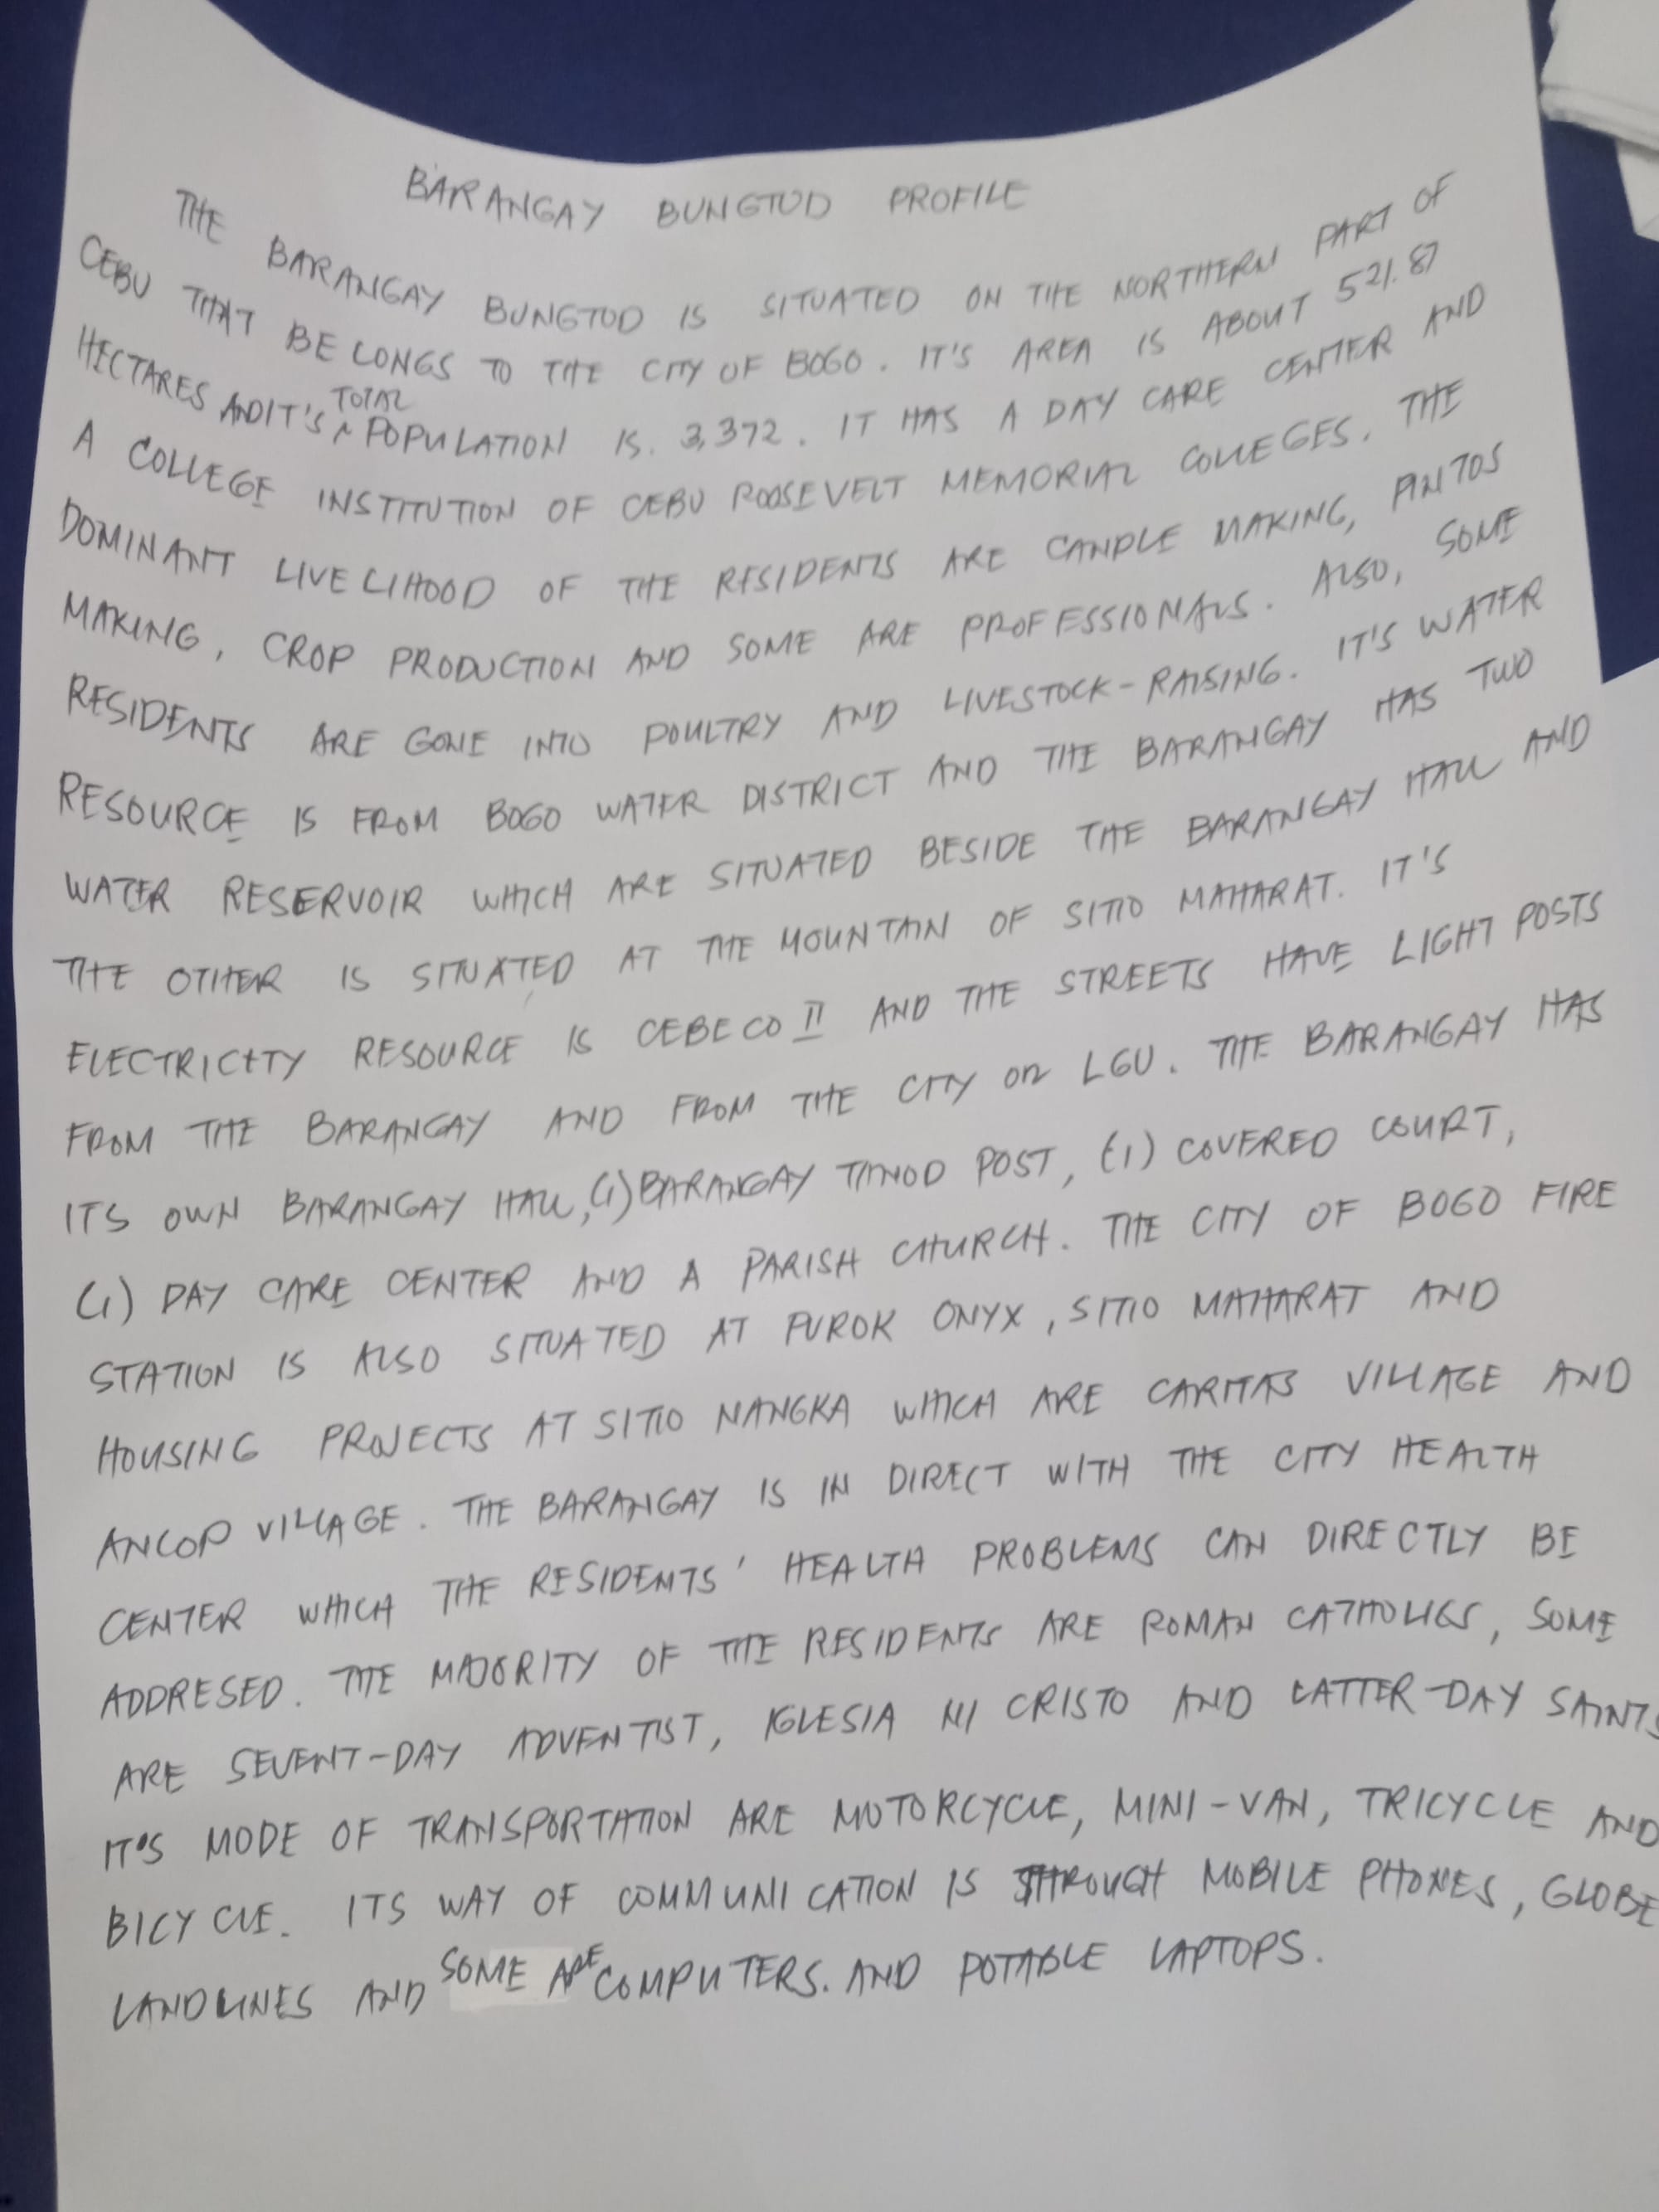 BARANGAY BUNGTOD PROFILE
THE BARANGAY BUNGTOD IS SITUATED ON THE NORTHERN PART OF
CEBU THAT BELONGS TO THE CITY OF BOGO. IT'S AREA IS ABOUT 521.87
HECTARES AND IT'S TOTAL POPULATION IS. 3,372. IT HAS A DAY CARE CENTER AND
A COLLEGE INSTITUTION OF CEBU ROOSEVELT MEMORIAL COLLEGES. THE
DOMINANT LIVELIHOOD OF THE RESIDENTS ARE CANDLE MAKING, PINTOS
MAKING, CROP PRODUCTION AND SOME ARE PROFESSIONALS. ALSO, SOME
RESIDENTS ARE GONE INTO POULTRY AND LIVESTOCK-RAISING. IT'S WATER
RESOURCE IS FROM BOGO WATER DISTRICT AND THE BARANGAY HAS TWO
WATER RESERVOIR WHICH ARE SITUATED BESIDE THE BARANGAY HALL AND
THE OTHER IS SITUATED AT THE MOUNTAIN OF SITIO MAHARAT. IT'S
ELECTRICITY RESOURCE IS CEBECO II AND THE STREETS HAVE LIGHT POSTS
FROM THE BARANGAY AND FROM THE CITY OR LGU. THE BARANGAY HAS
ITS OWN BARANGAY HALL, (1) BARANGAY TANOD POST, (1) COVERED COURT,
(1) DAY CARE CENTER AND A PARISH CHURCH. THE CITY OF BOGO FIRE
STATION IS ALSO SITUATED AT PUROK ONYX, SITIO MAHARAT AND
HOUSING PROJECTS AT SITIO NANGKA WHICH ARE CARITAS VILLAGE AND
ANCOP VILLAGE. THE BARANGAY IS IN DIRECT WITH THE CITY HEALTH
CENTER WHICH THE RESIDENTS' HEALTH PROBLEMS CAN DIRECTLY BE
ADDRESED. THE MAJORITY OF THE RESIDENTS ARE ROMAN CATHOLICS, SOME
ARE SEVENT-DAY ADVENTIST, IGLESIA NI CRISTO AND LATTER-DAY SAINTS
IT'S MODE OF TRANSPORTATION ARE MOTORCYCLE, MINI-VAN, TRICYCLE AND
BICYCLE. ITS WAY OF COMMUNICATION IS THROUGH MOBILE PHONES, GLOBE
LANDLINES AND SOME ARE COMPUTERS. AND POTABLE LAPTOPS.